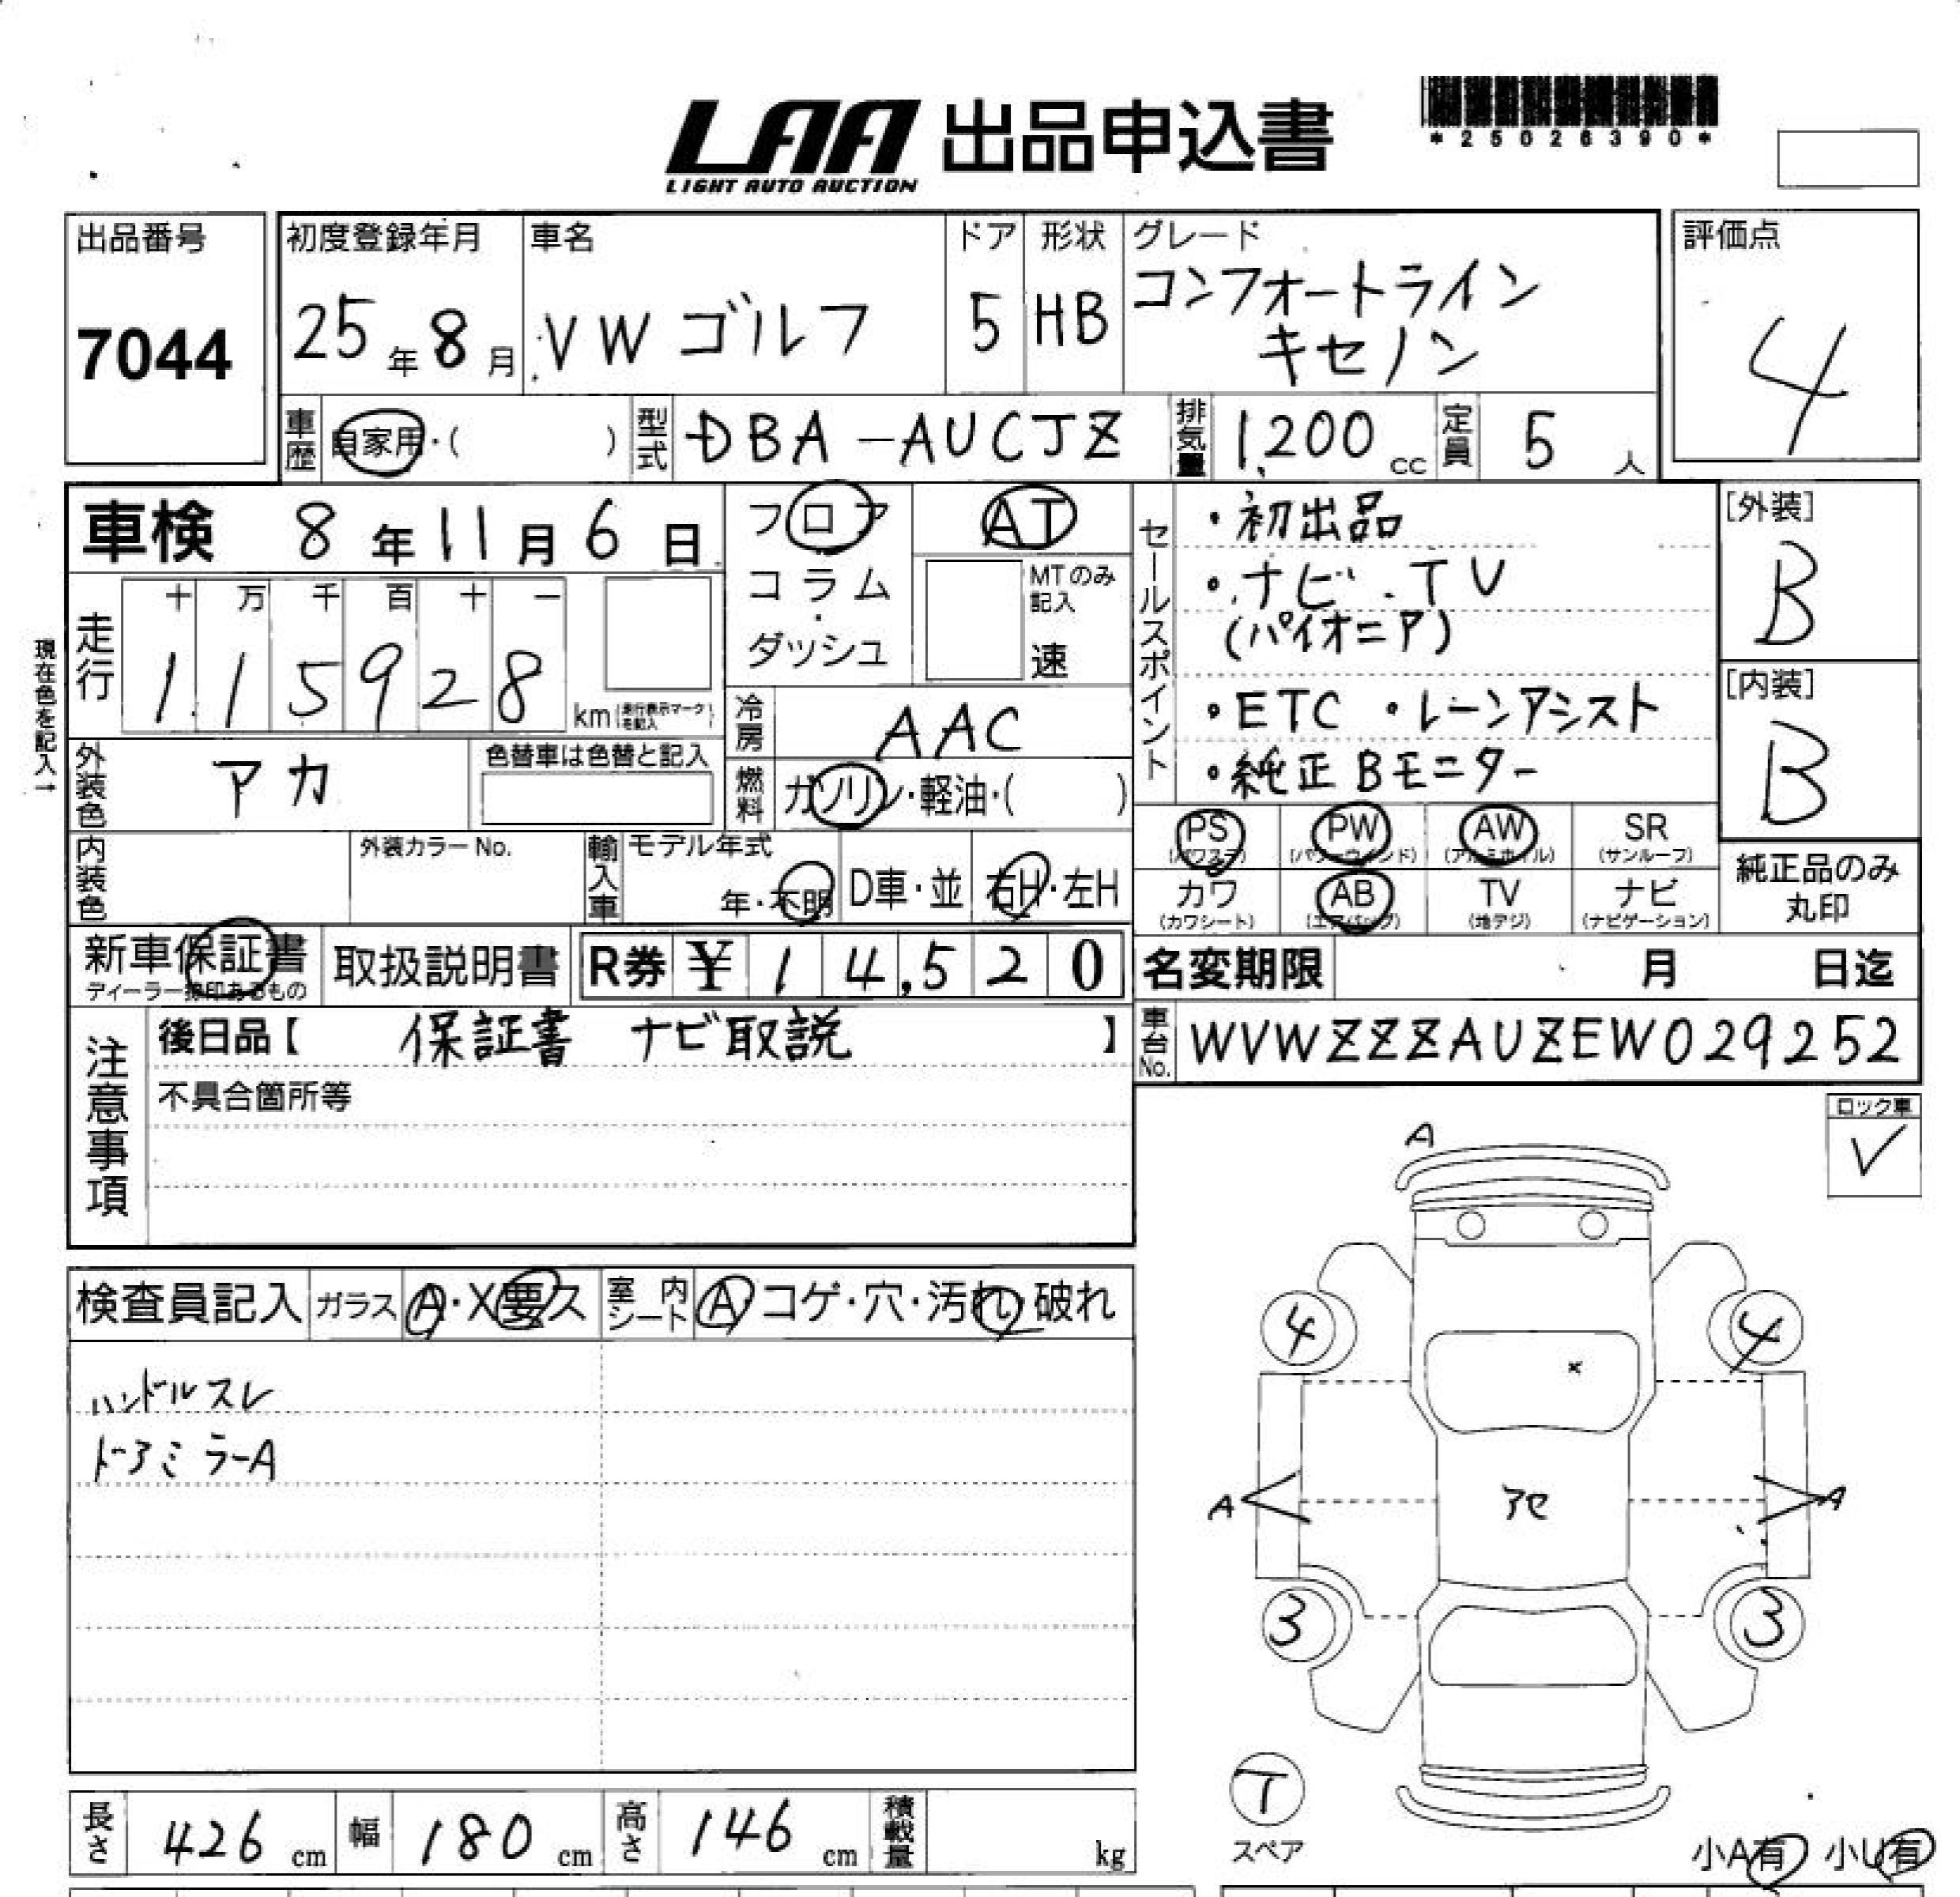 LAA 出品申込書
LIGHT AUTO AUCTION
*25026390*
出品番号
7044
初度登録年月
25年8月
車名
VW ゴルフ
ドア
5
形状
HB
グレード
コンフォートライン
キセノン
評価点
4
車歴 自家用・( )
型式 DBA-AUCJZ
排気量 1,200 cc
定員 5 人
車検 8年11月6日
現在色を記入→
走行
十 万 千 百 十 一
1 1 5 9 2 8 km(走行表示マークを記入)
外装色 アカ
色替車は色替と記入
内装色
外装カラーNo.
輸入車
モデル年式
年・不明
D車・並
右H・左H
フロア
コラム
・
ダッシュ
AT
MTのみ
記入
速
冷房 AAC
燃料 ガソリン・軽油・( )
セールスポイント
・初出品
・ナビ・TV
(パイオニア)
・ETC ・レーンアシスト
・純正Bモニター
PS (パワステ)
PW (パワーウインド)
AW (アルミホイル)
SR (サンルーフ)
カワ (カワシート)
AB (エアバック)
TV (地デジ)
ナビ (ナビゲーション)
[外装]
B
[内装]
B
純正品のみ
丸印
新車保証書
ディーラー捺印あるもの
取扱説明書
R券 ¥ 14,520
名変期限 月 日迄
車台No. WVWZZZAUZEW029252
注意事項
後日品【 保証書 ナビ取説 】
不具合箇所等
ロック車
✓
検査員記入
ガラス A・X要ス
室内シート A・コゲ・穴・汚れ・破れ
ハンドルスレ
ドアミラーA
A
4 4
×
A アセ A
3 3
T
スペア
小A有 小U有
長さ 426 cm
幅 180 cm
高さ 146 cm
積載量 kg